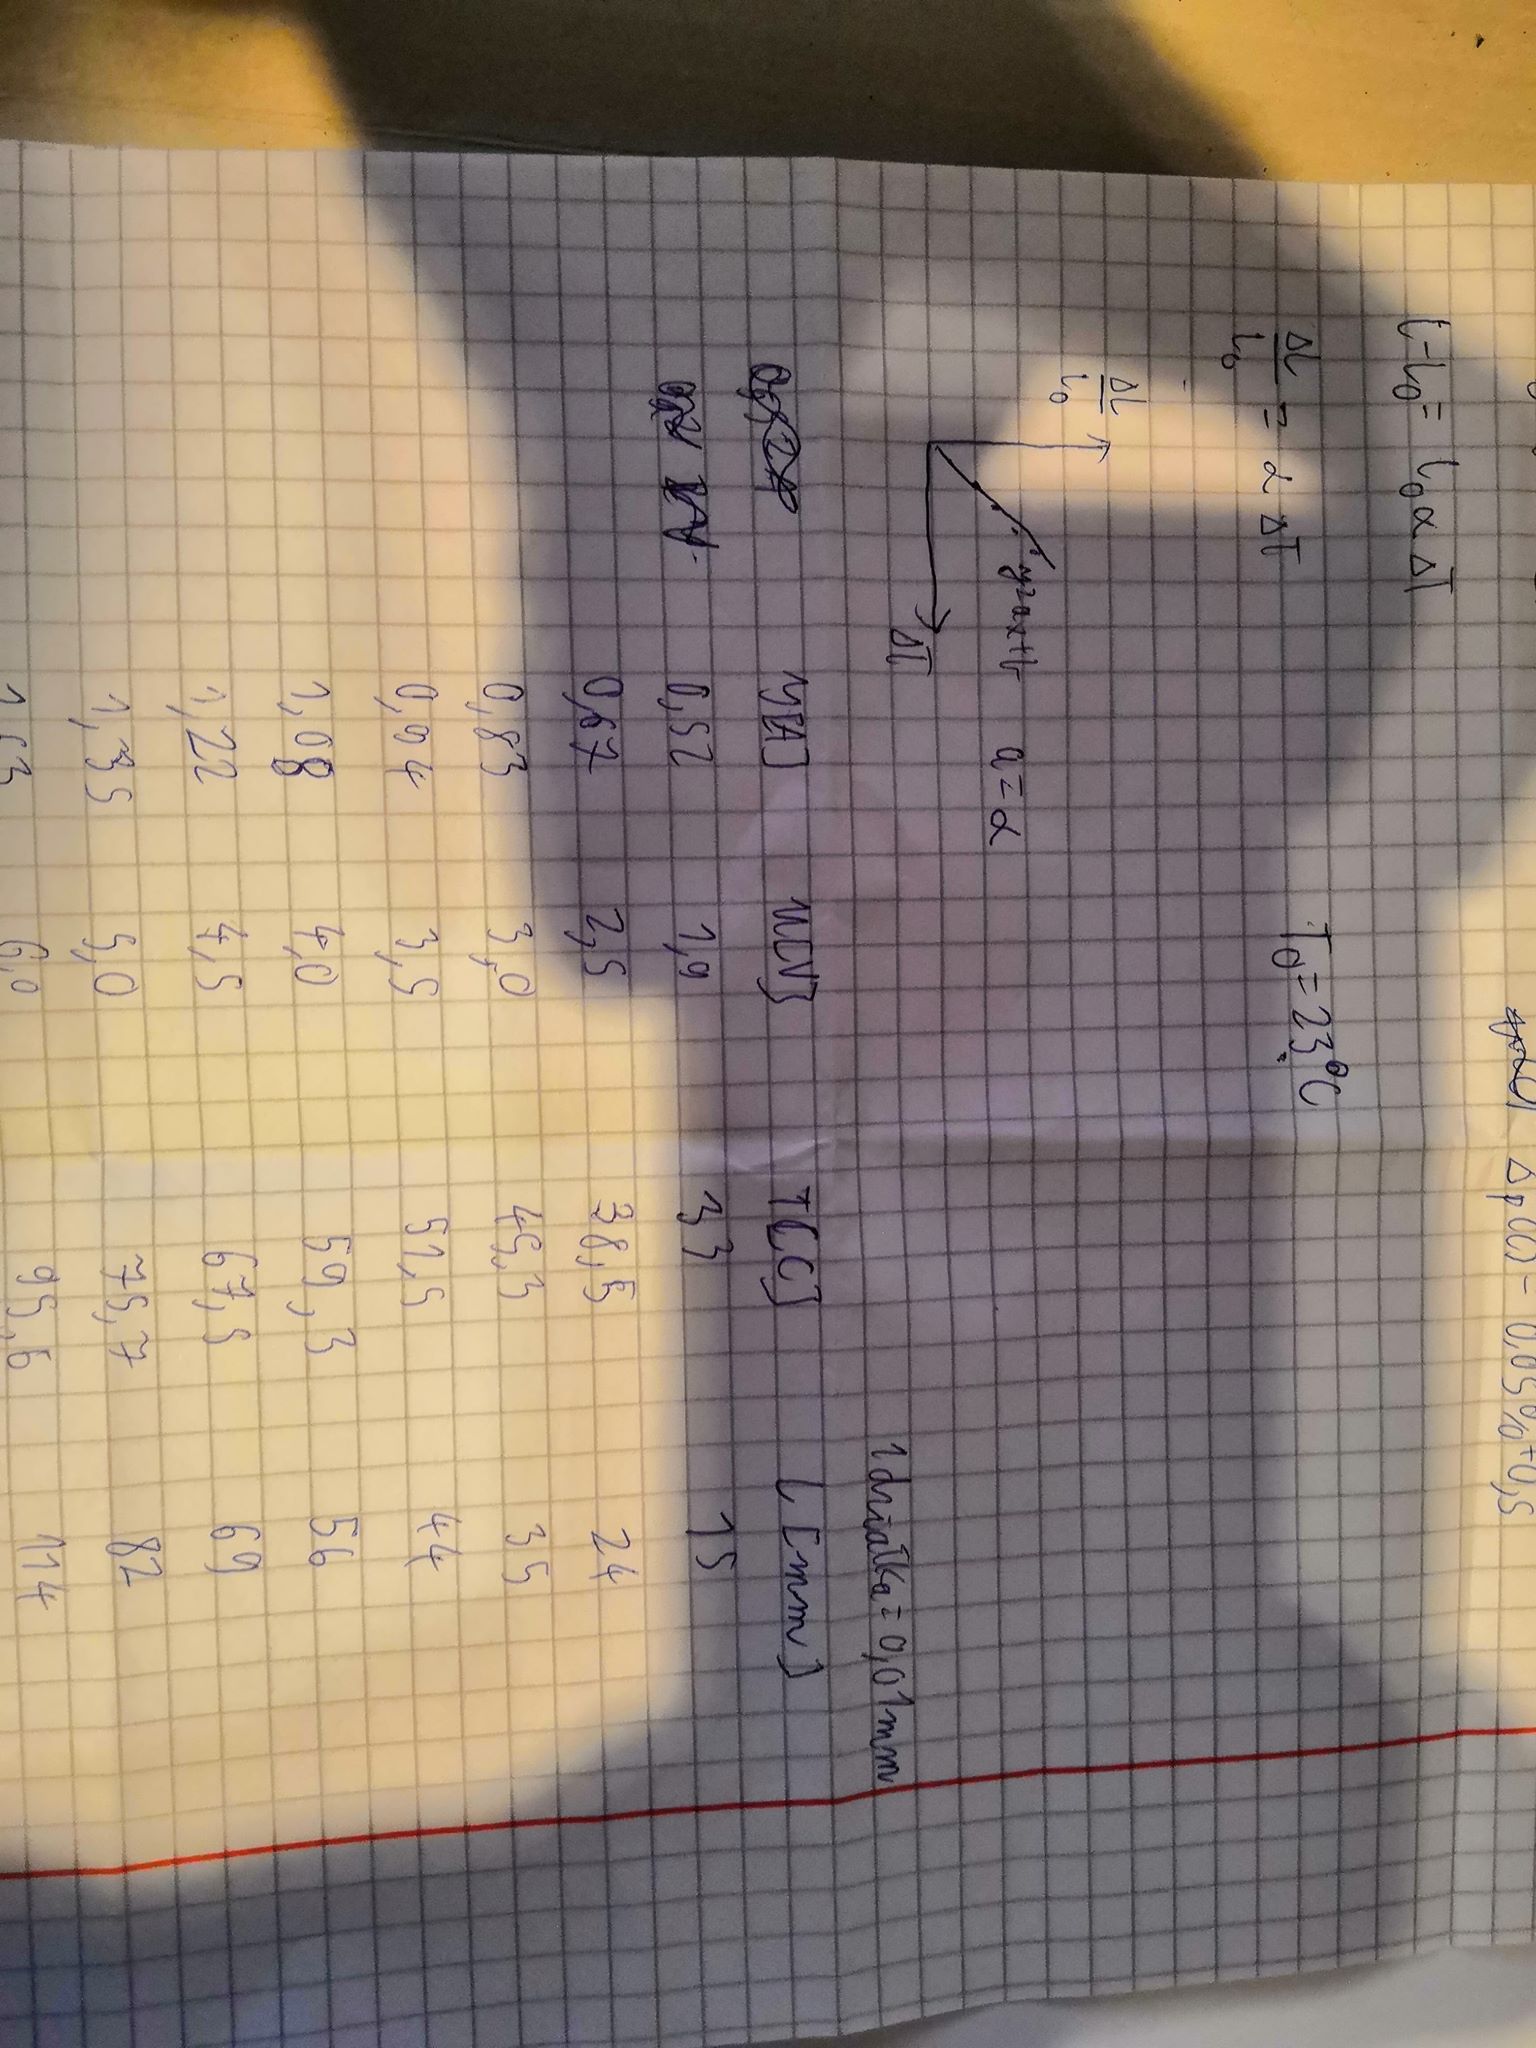 Δp(C) = 0,05%+0,5
l-l₀ = l₀ α ΔT
ΔL/L₀ = α ΔT T₀ = 23°C
ΔL/L₀
y=ax+b a=α
ΔT
1 działka = 0,01mm
I[A] U[V] T[C] L[mm]
0,52 1,9 33 15
0,67 2,5 38,5 24
0,83 3,0 45,3 35
0,94 3,5 51,5 44
1,08 4,0 59,3 56
1,22 4,5 67,5 69
1,35 5,0 75,7 82
1,63 6,0 95,6 114